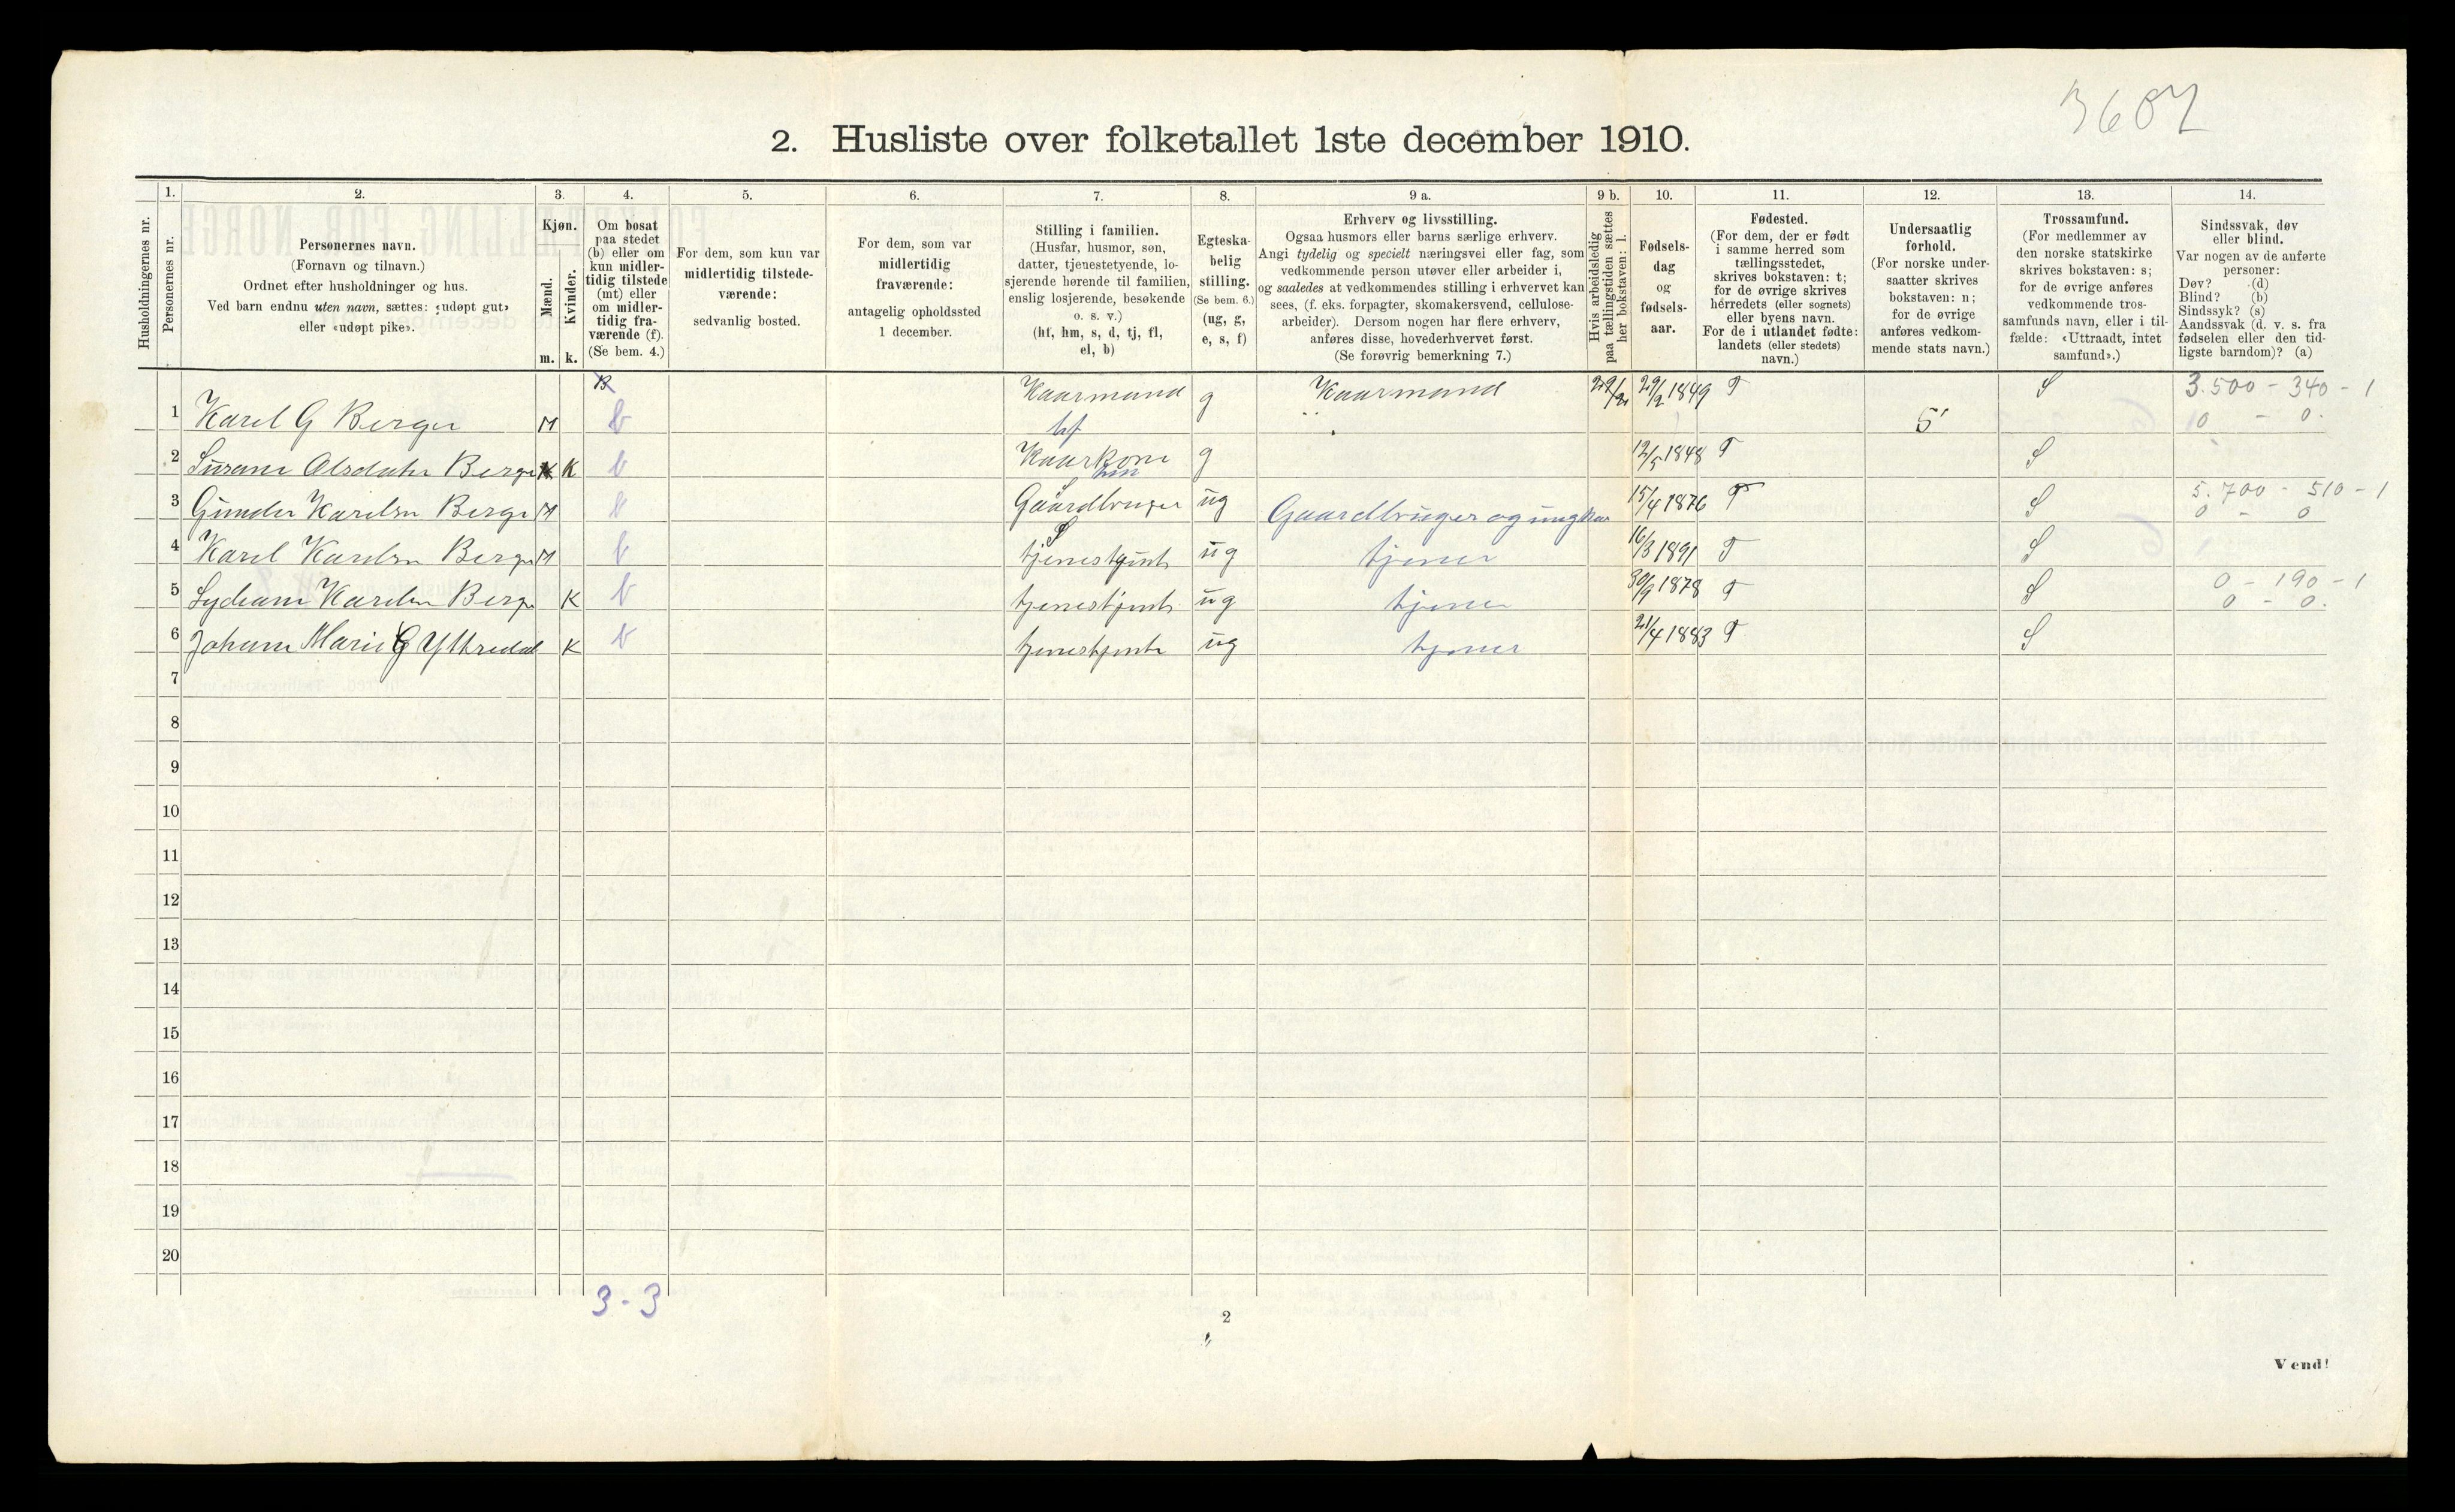 3607
2. Husliste over folketallet 1ste december 1910.
Husholdningernes nr.
1.
Personernes nr.
2.
Personernes navn.
(Fornavn og tilnavn.)
Ordnet efter husholdninger og hus.
Ved barn endnu uten navn, sættes: «udøpt gut»
eller «udøpt pike».
3.
Kjøn.
Mænd.
Kvinder.
m. k.
4.
Om bosat
paa stedet
(b) eller om
kun midler-
tidig tilstede
(mt) eller
om midler-
tidig fra-
værende (f).
(Se bem. 4.)
5.
For dem, som kun var
midlertidig tilstede-
værende:
sedvanlig bosted.
6.
For dem, som var
midlertidig
fraværende:
antagelig opholdssted
1 december.
7.
Stilling i familien.
(Husfar, husmor, søn,
datter, tjenestetyende, lo-
sjerende hørende til familien,
enslig losjerende, besøkende
o. s. v.)
(hf, hm, s, d, tj, fl,
el, b)
8.
Egteska-
belig
stilling.
(Se bem. 6.)
(ug, g,
e, s, f)
9 a.
Erhverv og livsstilling.
Ogsaa husmors eller barns særlige erhverv.
Angi tydelig og specielt næringsvei eller fag, som
vedkommende person utøver eller arbeider i,
og saaledes at vedkommendes stilling i erhvervet kan
sees, (f. eks. forpagter, skomakersvend, cellulose-
arbeider). Dersom nogen har flere erhverv,
anføres disse, hovederhvervet først.
(Se forøvrig bemerkning 7.)
9 b.
Hvis arbeidsledig
paa tællingstiden sættes
her bokstaven: l.
10.
Fødsels-
dag
og
fødsels-
aar.
11.
Fødested.
(For dem, der er født
i samme herred som
tællingsstedet,
skrives bokstaven: t;
for de øvrige skrives
herredets (eller sognets)
eller byens navn.
For de i utlandet fødte:
landets (eller stedets)
navn.)
12.
Undersaatlig
forhold.
(For norske under-
saatter skrives
bokstaven: n;
for de øvrige
anføres vedkom-
mende stats navn.)
13.
Trossamfund.
(For medlemmer av
den norske statskirke
skrives bokstaven: s;
for de øvrige anføres
vedkommende tros-
samfunds navn, eller i til-
fælde: «Uttraadt, intet
samfund».)
14.
Sindssvak, døv
eller blind.
Var nogen av de anførte
personer:
Døv? (d)
Blind? (b)
Sindssyk? (s)
Aandssvak (d. v. s. fra
fødselen eller den tid-
ligste barndom)? (a)
B Kaarmand g Kaarmand 29/2 29/2 1849 T S 3.500 - 340 - 1
1 Karel G Berge M b hf 5 0 - 0.
2 Susane Olsdatr Berge K b Kaarkone hm g 12/5 1848 T S
5.700 - 510 - 1
3 Gunder Karelsn Berge M b s Gaardbruger ug Gaardbruger og ungkar 15/4 1876 T S 0 - 0
4 Karel Karelsn Berge M b s tjenestgut ug tjener 16/3 1891 T S
0 - 190 - 1
5 Lydiane Karelsn Berge K b tjenestjente ug tjener 30/9 1878 T S 0 - 0.
6 Johane Marie G Yttredal K b tjenestjente ug tjener 21/4 1883 T S
7
8
9
10
11
12
13
14
15
16
17
18
19
20
3 - 3
2
Vend!